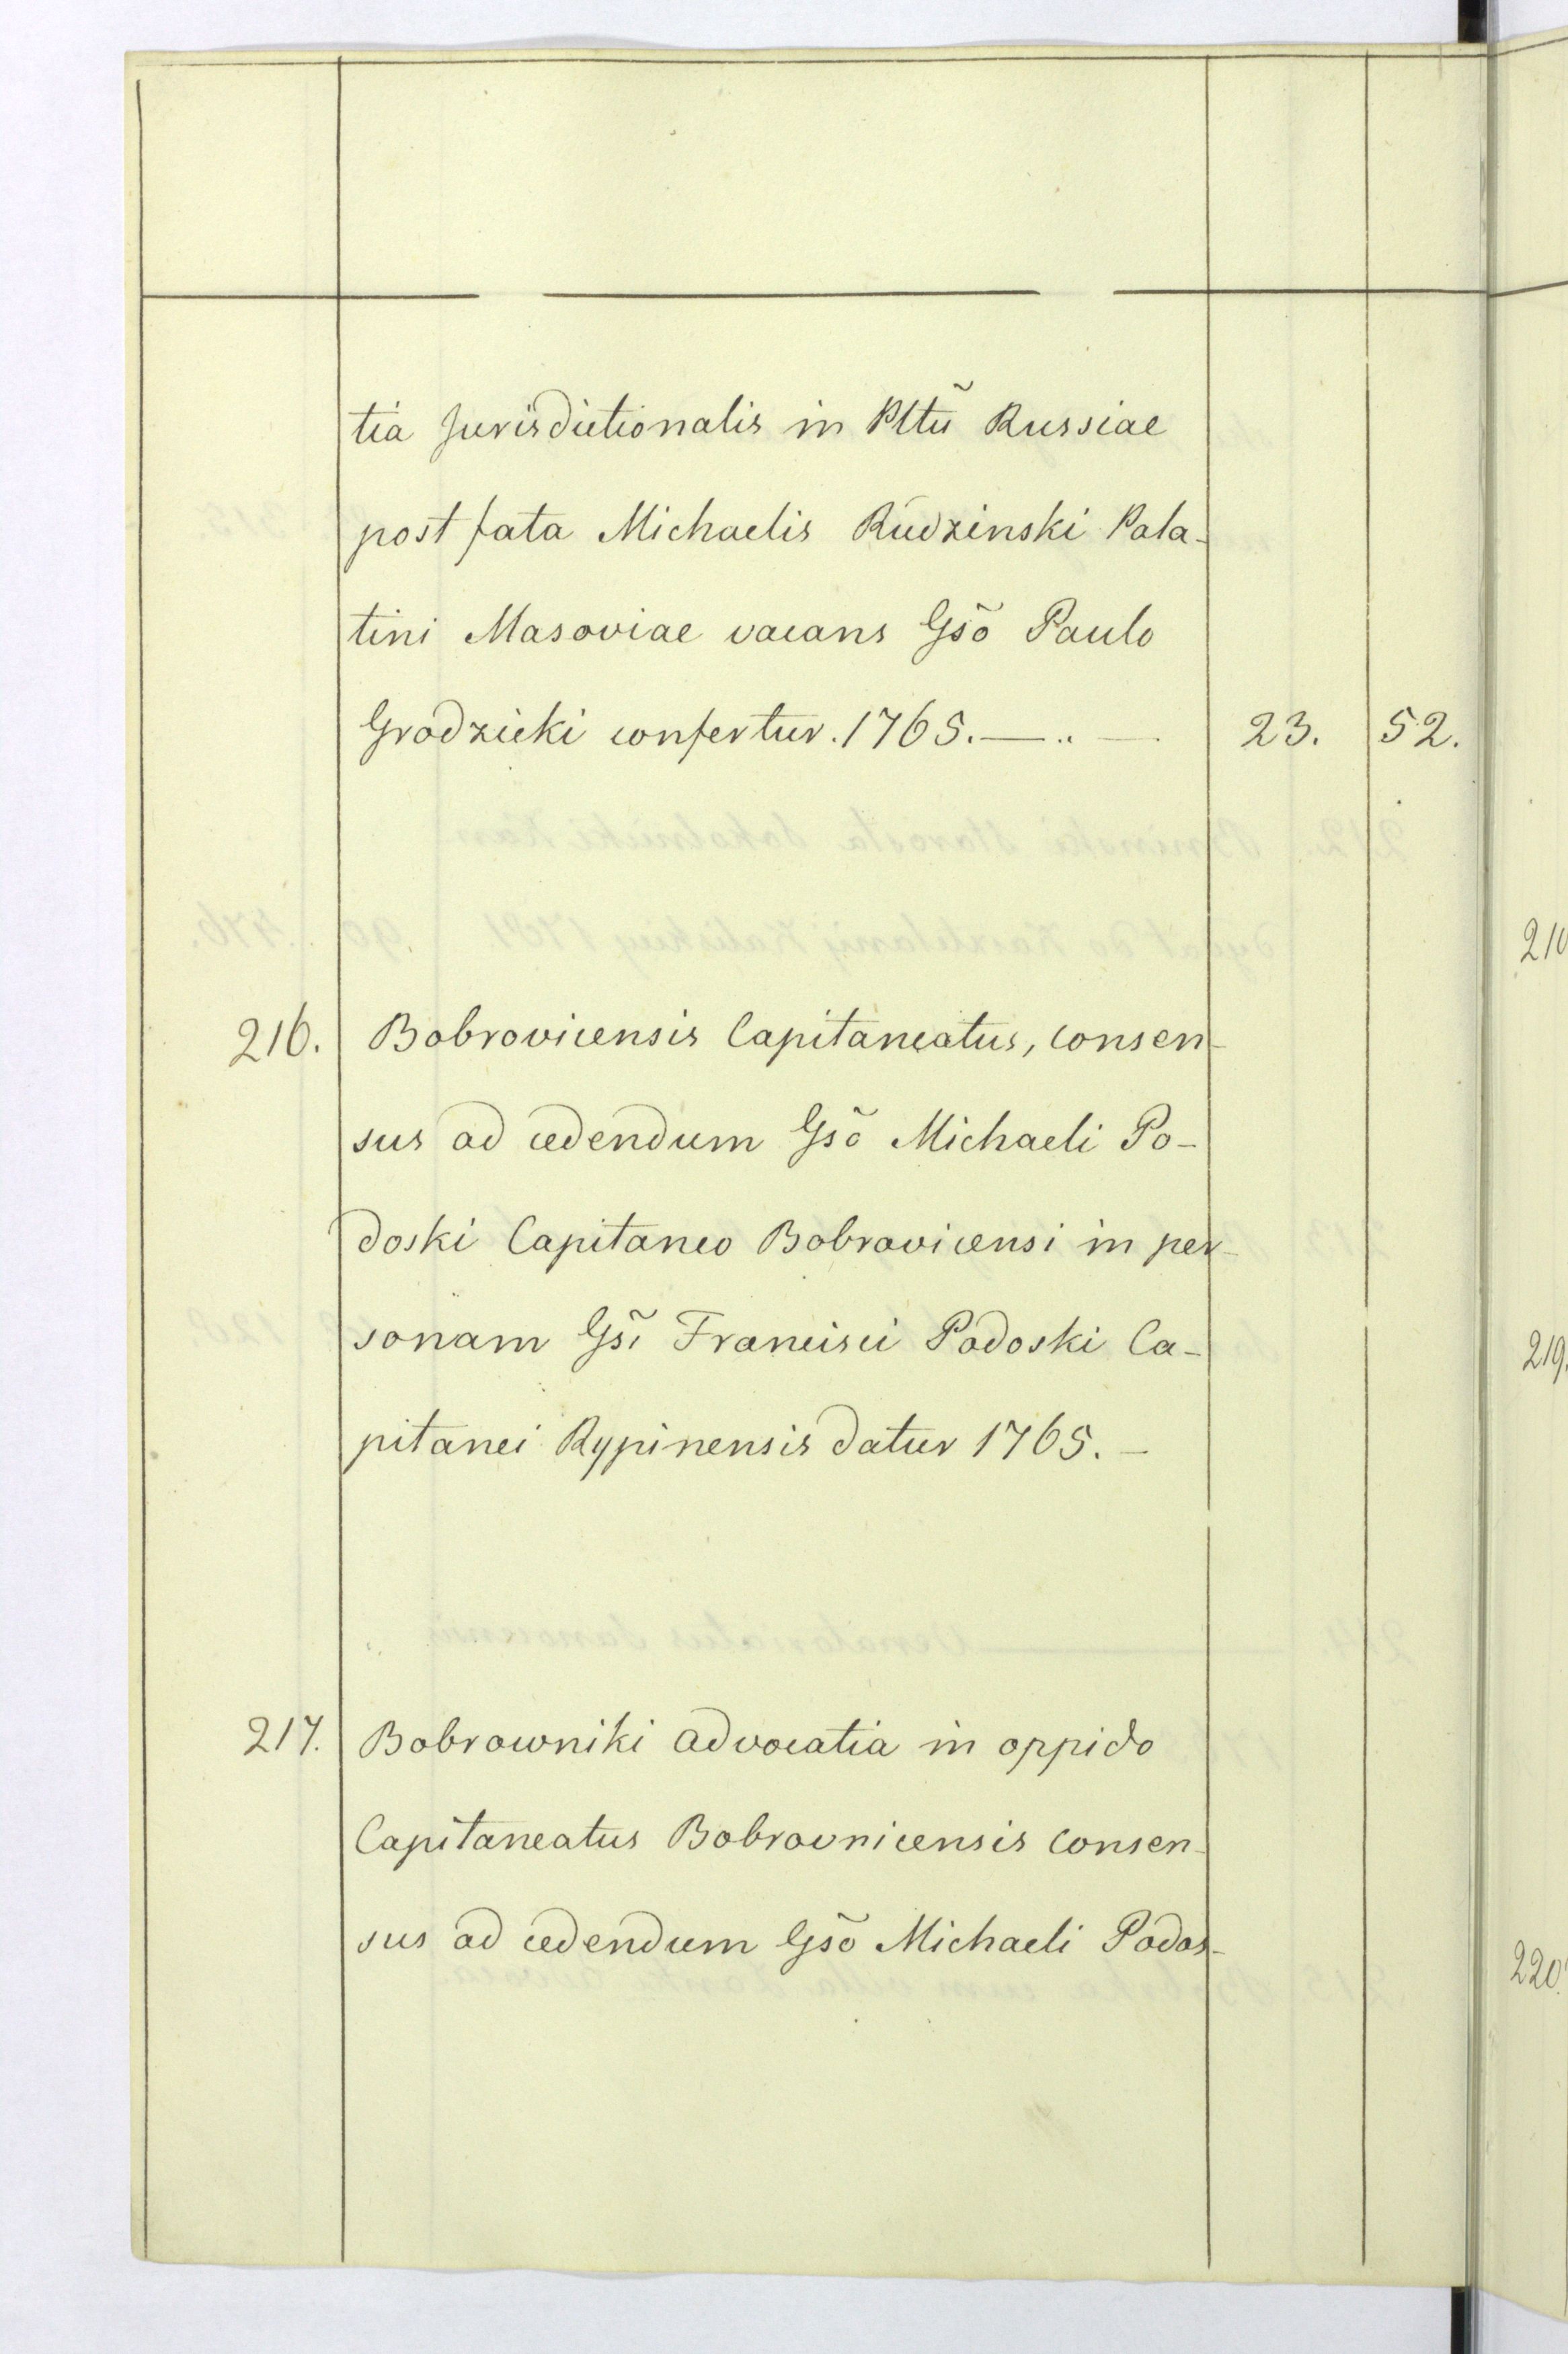 tia Jurisdictionalis in Pltũ Russiae
post fata Michaelis Rudzinski Pala-
tini Masoviae vacans Gsõ Paulo
Grodzicki confertur. 1765. — .. — 23. 52.
216. Bobrovicensis Capitaneatus, consen-
sus ad cedendum Gsõ Michaeli Po-
doski Capitaneo Bobrovicensi in per-
sonam Gsĩ Francisci Podoski Ca-
pitanei Rypinensis datur 1765. —
217. Bobrowniki advocatia in oppido
Capitaneatus Bobrovnicensis consen-
sus ad cedendum Gsõ Michaeli Podos-
218
219.
220.